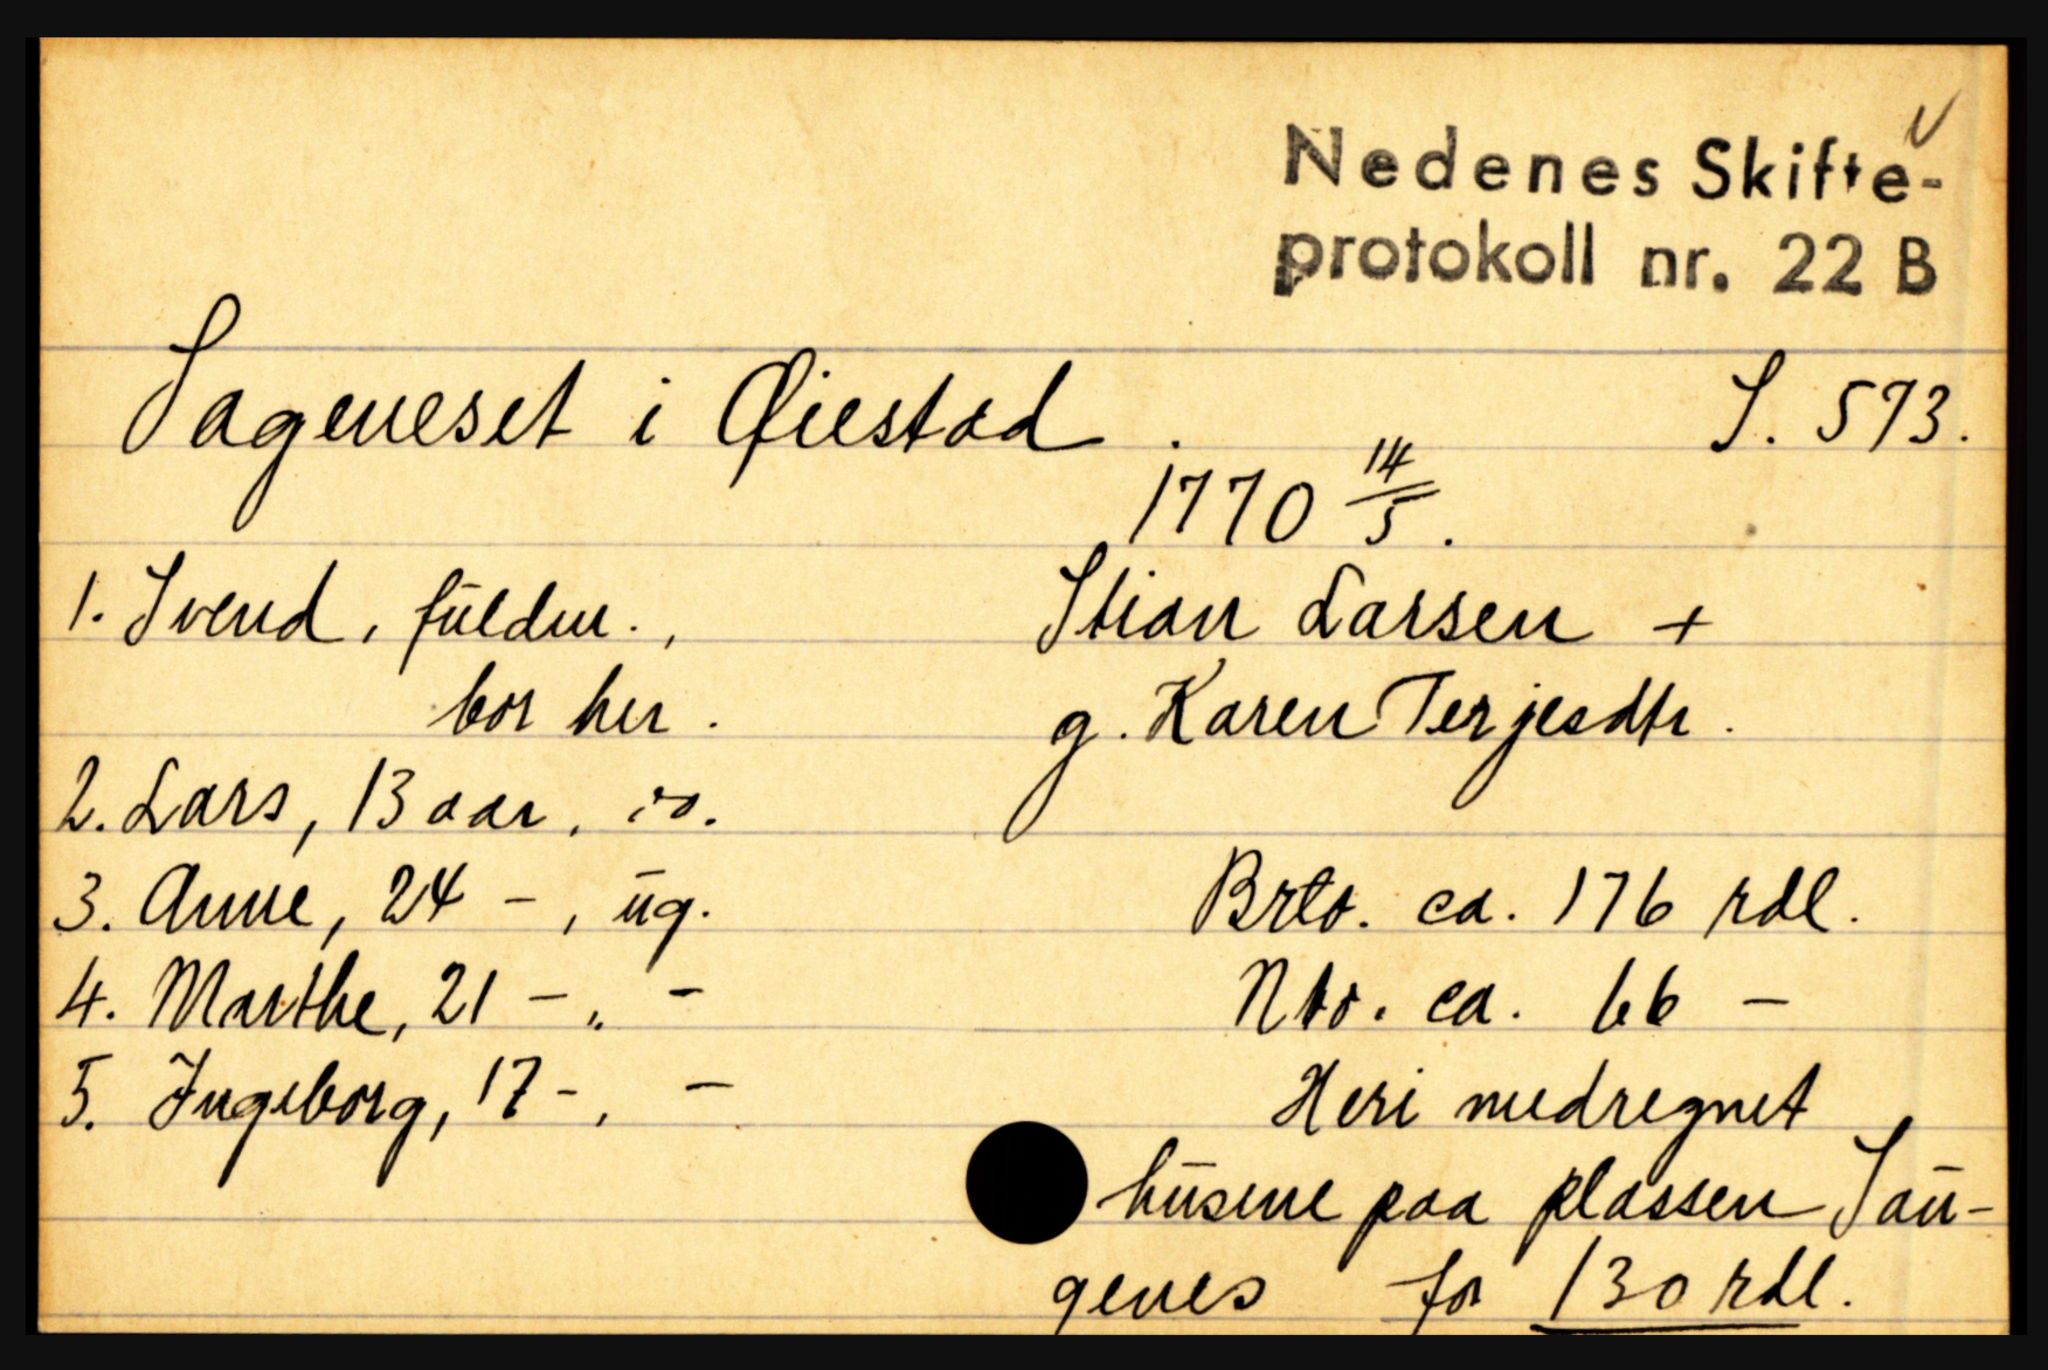 Nedenes Skifte-
protokoll nr. 22 B
Sageneset i Øiestad. S. 573.
1770 14/5.
1. Svend, fuldm.,
bor her.
2. Lars, 13 aar, do.
3. Anne, 24 -, ug.
4. Marthe, 21 -, -
5. Ingeborg, 17 -, -
Stian Larsen +
g. Karen Terjesdtr.
Brto. ca. 176 rdl.
Nto. ca. 66 -
Heri medregnet
husene paa plassen Sau-
genes for 130 rdl.